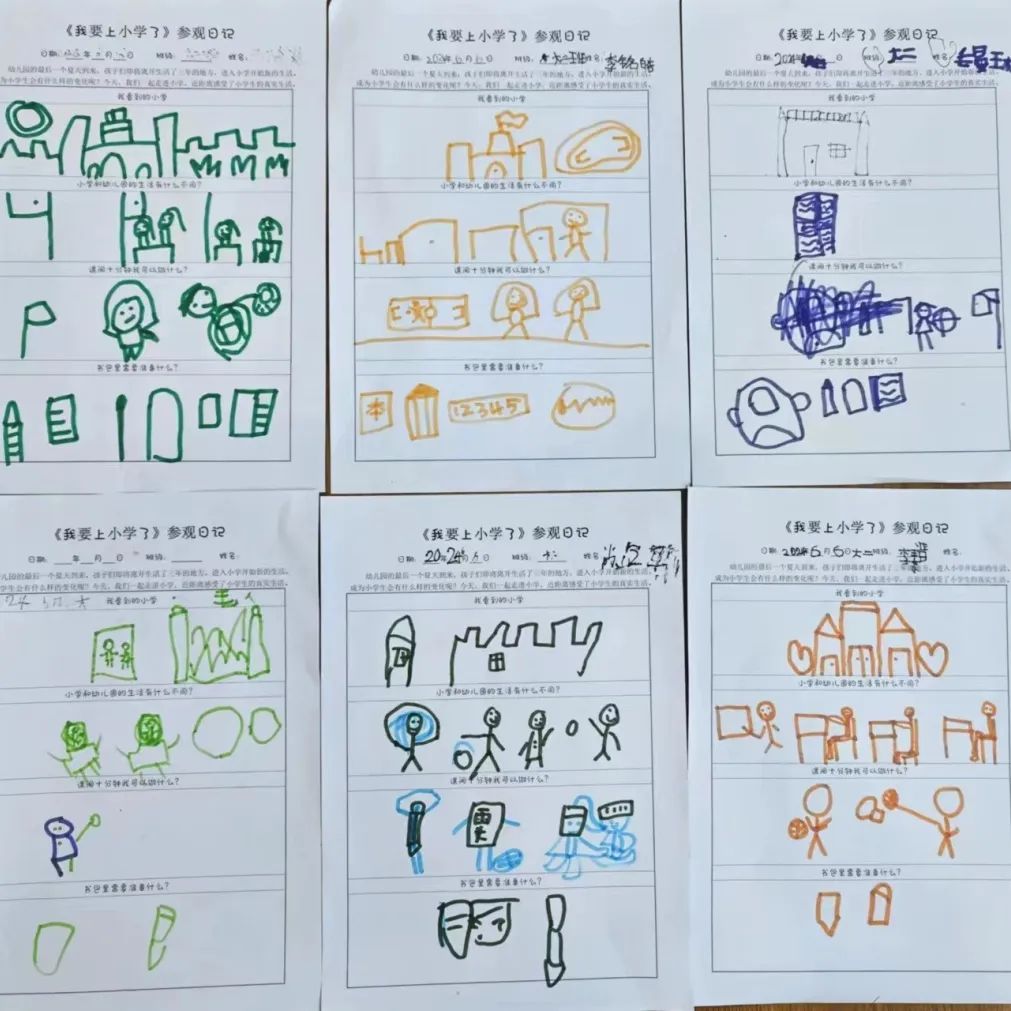 《我要上小学了》参观日记
日期: 年 月 日 班级: 姓名:
幼儿园的最后一个夏天到来，孩子们即将离开生活了三年的地方，进入小学开始新的生活，
成为小学生会有什么样的变化呢？今天，我们一起走进小学，近距离感受了小学生的真实生活。
我看到的小学
小学和幼儿园的生活有什么不同？
课间十分钟我可以做什么？
书包里需要准备什么？
《我要上小学了》参观日记
日期: 2024年6月6日 班级: 大二班 姓名:
幼儿园的最后一个夏天到来，孩子们即将离开生活了三年的地方，进入小学开始新的生活，
成为小学生会有什么样的变化呢？今天，我们一起走进小学，近距离感受了小学生的真实生活。
我看到的小学
小学和幼儿园的生活有什么不同？
课间十分钟我可以做什么？
书包里需要准备什么？
本
12345
《我要上小学了》参观日记
日期: 2024 日 班级: 大二
幼儿园的最后一个夏天到来，孩子们即将离开生活了三年的地方，进入小学开始新的生活，
成为小学生会有什么样的变化呢？今天，我们一起走进小学，近距离感受了小学生的真实生活。
我看到的小学
小学和幼儿园的生活有什么不同？
课间十分钟我可以做什么？
书包里需要准备什么？
《我要上小学了》参观日记
日期: 年 月 日 班级: 姓名:
幼儿园的最后一个夏天到来，孩子们即将离开生活了三年的地方，进入小学开始新的生活，
小学生会有什么样的变化呢？今天，我们一起走进小学，近距离感受了小学生的真实生活。
24
我看到的小学
小学和幼儿园的生活有什么不同？
课间十分钟我可以做什么？
书包里需要准备什么？
《我要上小学了》参观日记
日期: 2024 6 日 班级: 大二 姓名:
幼儿园的最后一个夏天到来，孩子们即将离开生活了三年的地方，进入小学开始新的生活，
成为小学生会有什么样的变化呢？今天，我们一起走进小学，近距离感受了小学生的真实生活。
我看到的小学
小学和幼儿园的生活有什么不同？
课间十分钟我可以做什么？
书包里需要准备什么？
《我要上小学了》参观日记
日期: 2024年6月6日 大二班级:
幼儿园的最后一个夏天到来，孩子们即将离开生活了三年的地方，进入小学开始新的生活，
成为小学生会有什么样的变化呢？今天，我们一起走进小学，近距离感受了小学生的真实生活。
我看到的小学
小学和幼儿园的生活有什么不同？
课间十分钟我可以做什么？
书包里需要准备什么？